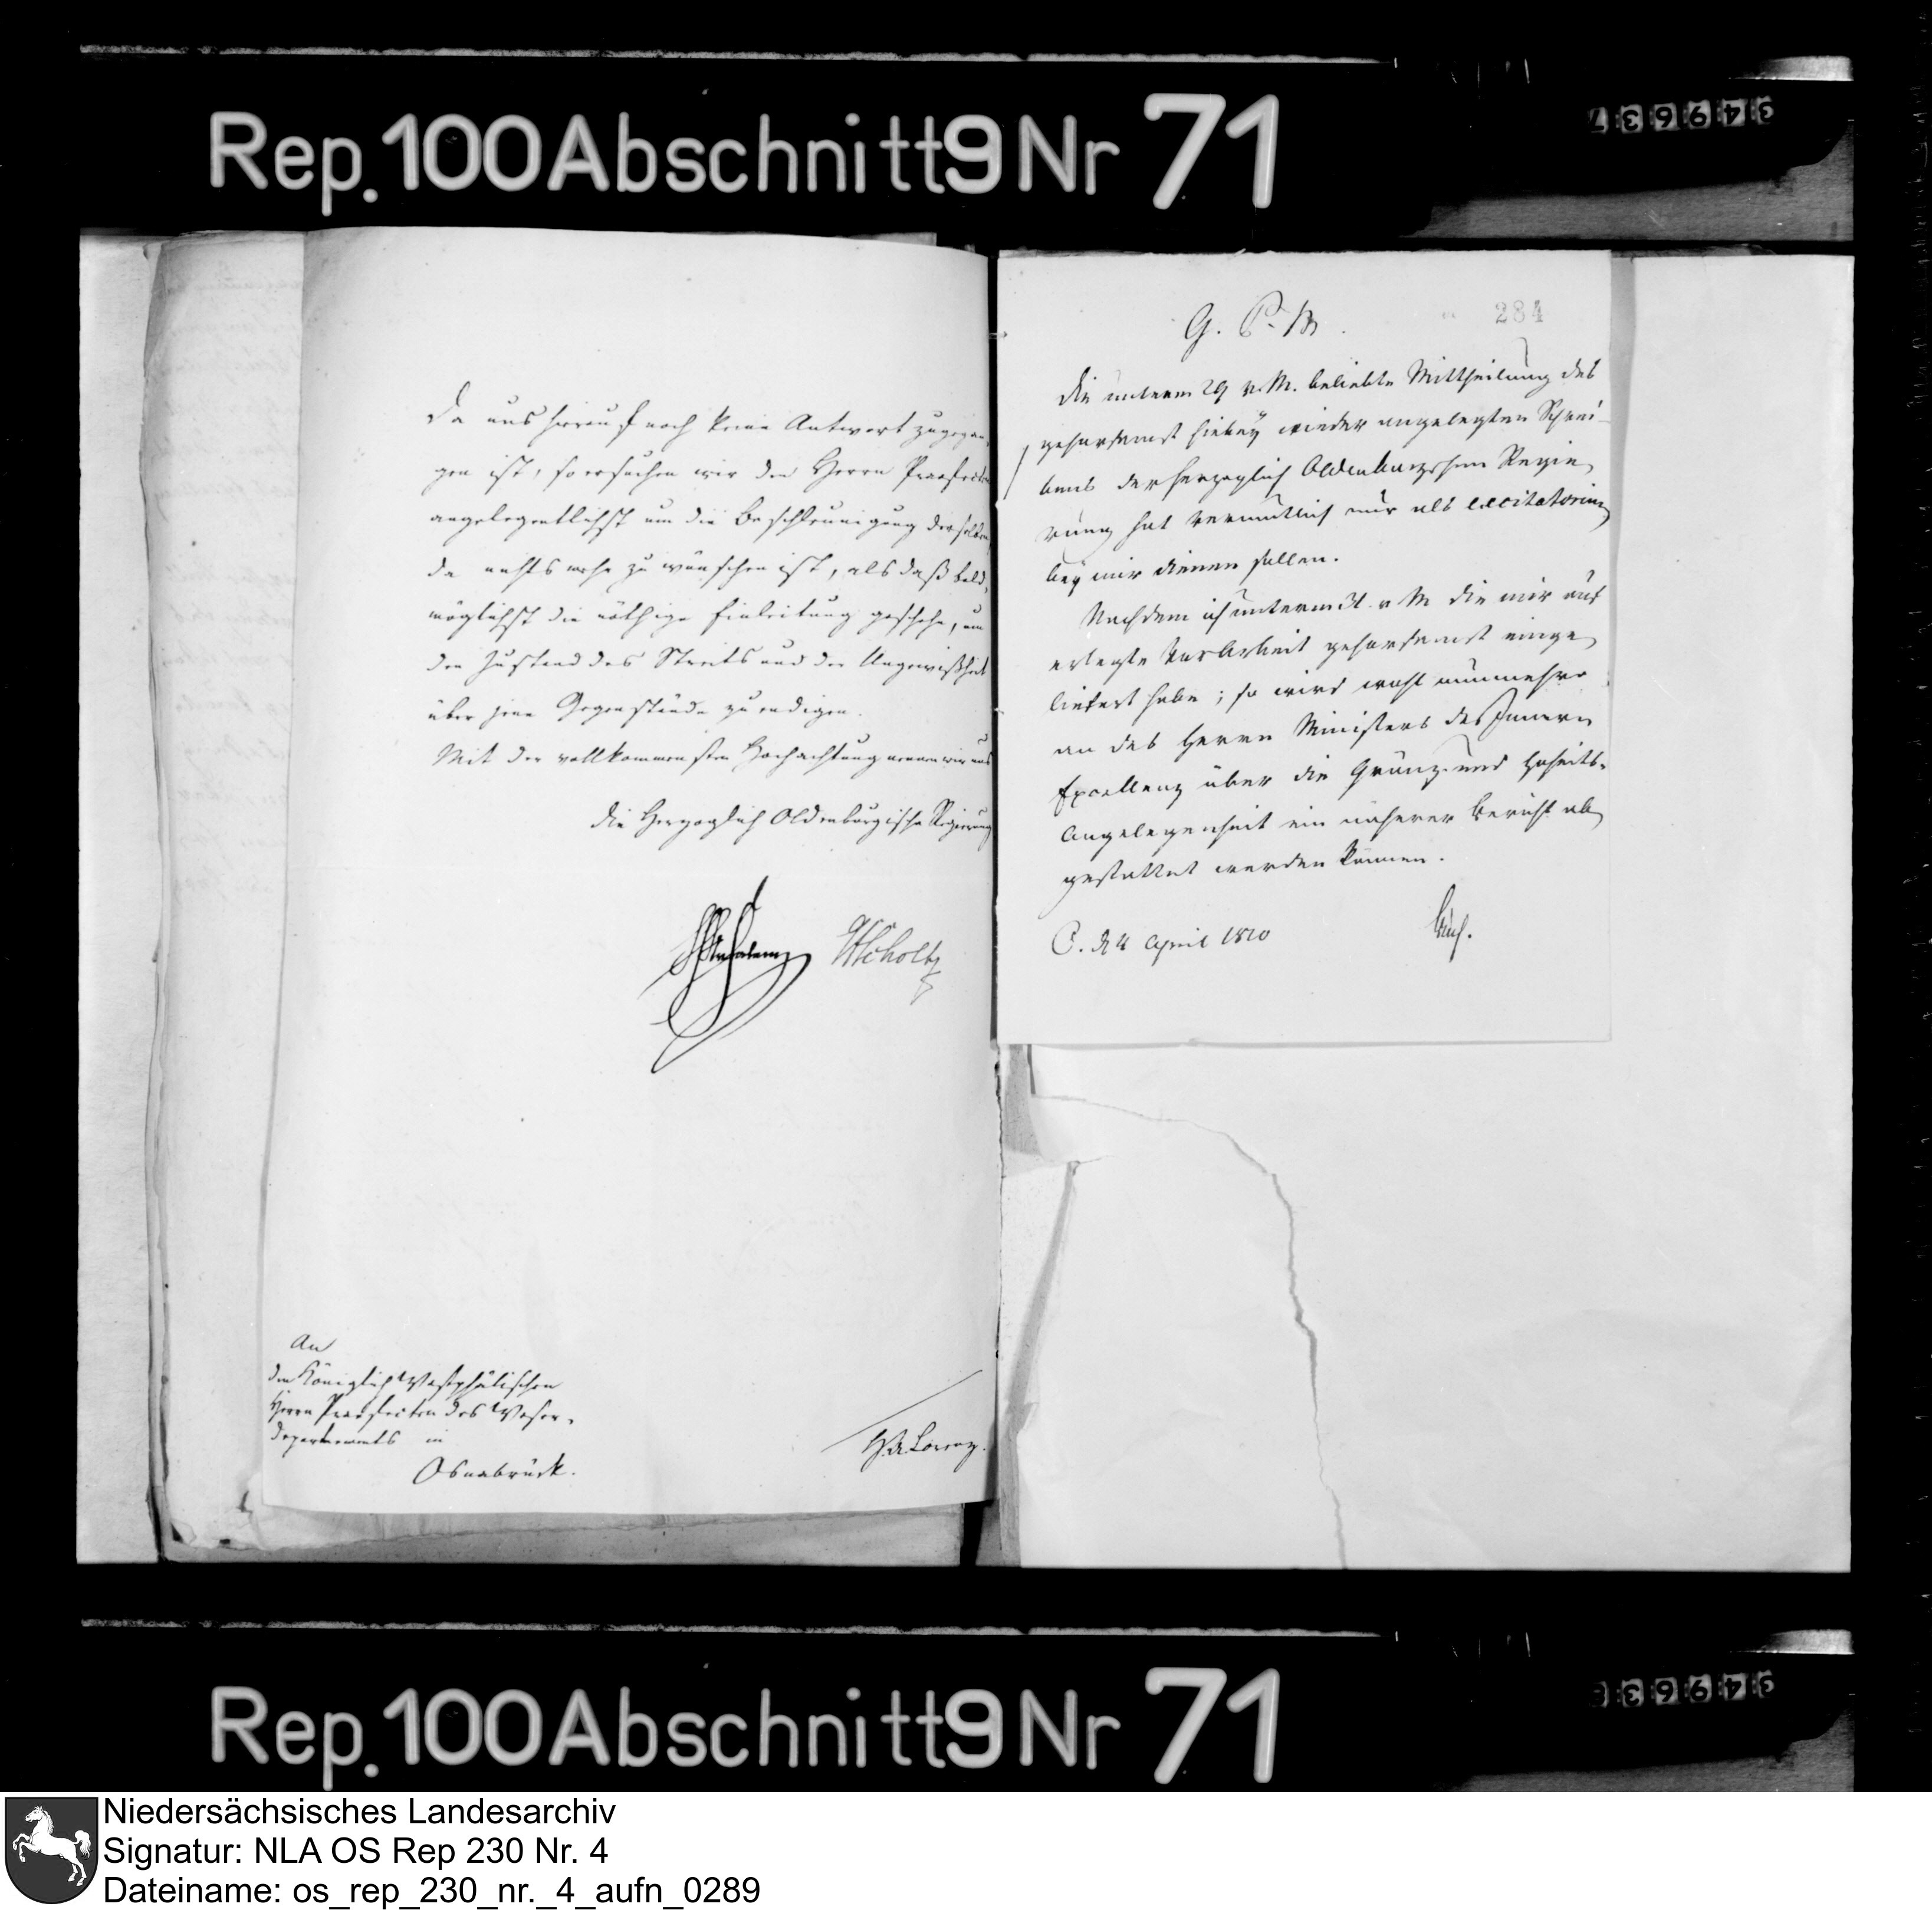 Rep. 100 Abschnitt 9 Nr 71
Da uns hierauf noch keine Antwort zugegan-
gen ist, so ersuchen wir den Herrn Praefecten
angelegentlichst um die Beschleunigung derselben,
da nichts mehr zu wünschen ist, als daß bald-
möglichst die nöthige Einleitung geschehe, um
den Zustand des Streits und der Ungewißheit
über jene Gegenstände zu endigen.
Mit der vollkommensten Hochachtung nennen wir uns
Die Herzoglich Oldenburgische Regierung
Scholtz
An
den Königlich Westphälischen
Herrn Praefecten des Weser-
departements in
Osnabrück.
Lorenz.
284
G. P. M.
Die unterm 29 v. M. beliebte Mittheilung des
gehorsamst hiebey wieder angelegten Schrei-
bens der Herzoglich Oldenburgschen Regie
rung hat vermuthlich nur als excitatorium
bey mir dienen sollen.
Nachdem ich unterm 31. v M die mir auf
erlegte Vorarbeit gehorsamst einge
liefert habe; so wird wohl nunmehro
an des Herrn Ministers des Innern
Excellenz über die Gränz- und Hoheits-
Angelegenheit ein näherer Bericht ab
gestattet werden können.
O. d. 4 April 1810
Struf.
Rep. 100 Abschnitt 9 Nr 71
Niedersächsisches Landesarchiv
Signatur: NLA OS Rep 230 Nr. 4
Dateiname: os_rep_230_nr._4_aufn_0289